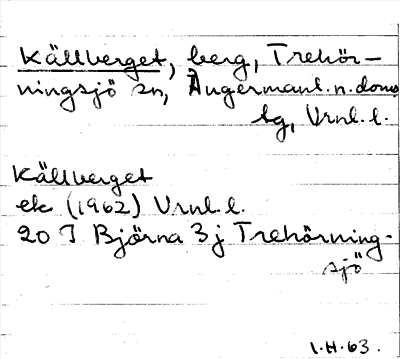 Källberget, berg, Trehör-
ningsjö sn, Ångermanl. n. doms
tg, Vrnl. l.
Källberget
ek (1962) Vrnl. l.
20 I Björna 3 j Trehörning-
sjö
1.H.63.